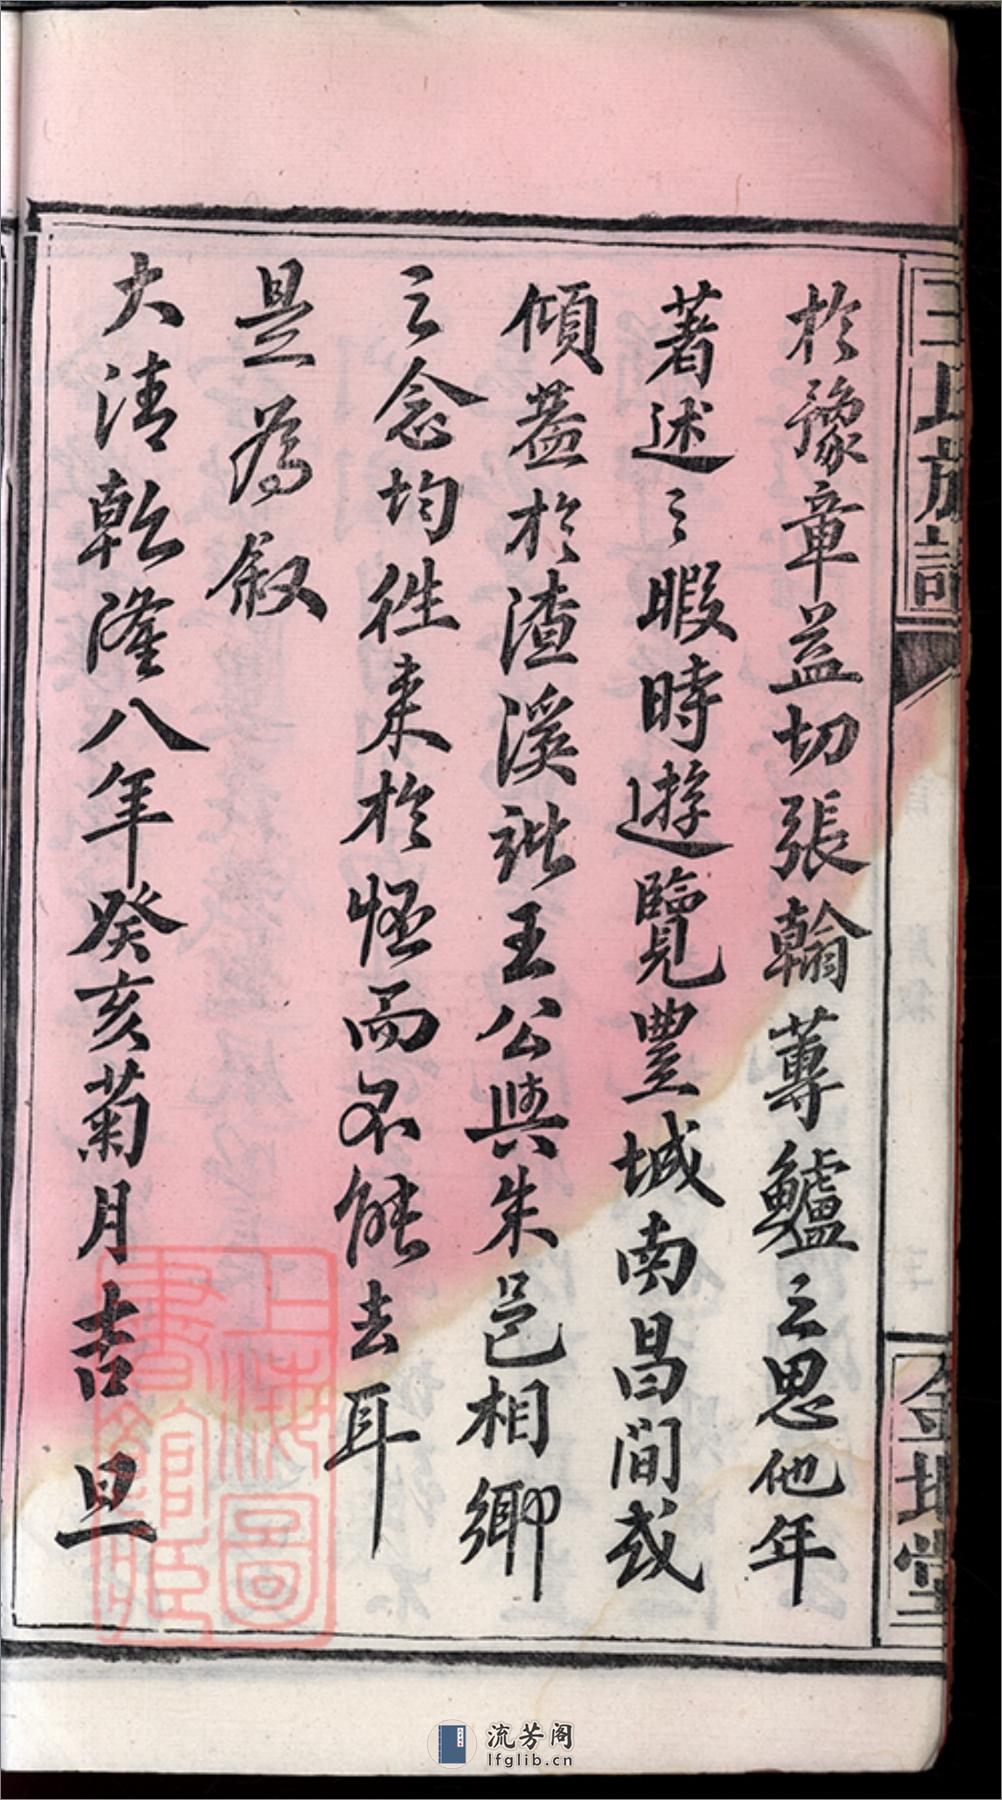 王氏族譜
金坵堂
於豫章益切張翰蓴鱸之思他年
著述之暇時遊覽豐城南昌間或
傾葢於渣溪訿王公與朱邑相鄉
之念均徃来於怪而不能去耳
是為叙
大清乾隆八年癸亥菊月吉旦
上海圖書館藏
流芳阁
lfglib.cn